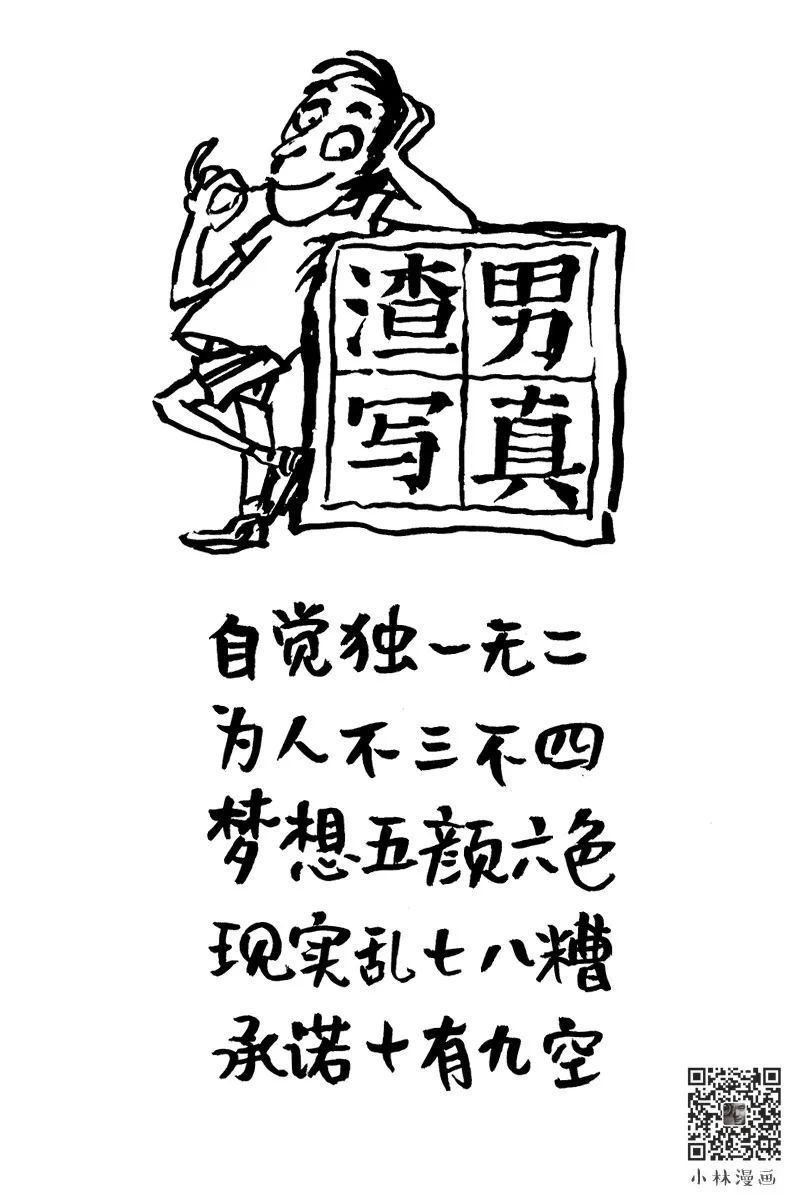 渣男
写真
自觉独一无二
为人不三不四
梦想五颜六色
现实乱七八糟
承诺十有九空
小林漫画